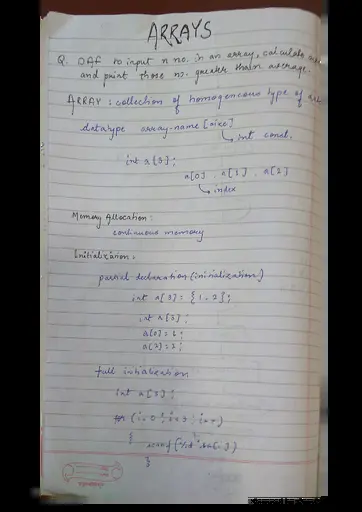 ARRAYS
Q. DAF to input n no. in an array, calculate
and print those no. greater than average.
ARRAY : collection of homogeneous type of
datatype array-name [size]
int const.
int a[3];
a[0] , a[1] , a[2]
index
Memory Allocation :
continuous memory
Initialization :
partial declaration (initialization)
int a[3] = {1, 2};
int a[3];
a[0] = 1;
a[2] = 2;
full initialization
int a[3];
for (i=0; i<3; i++)
{
scanf ("%d",
}